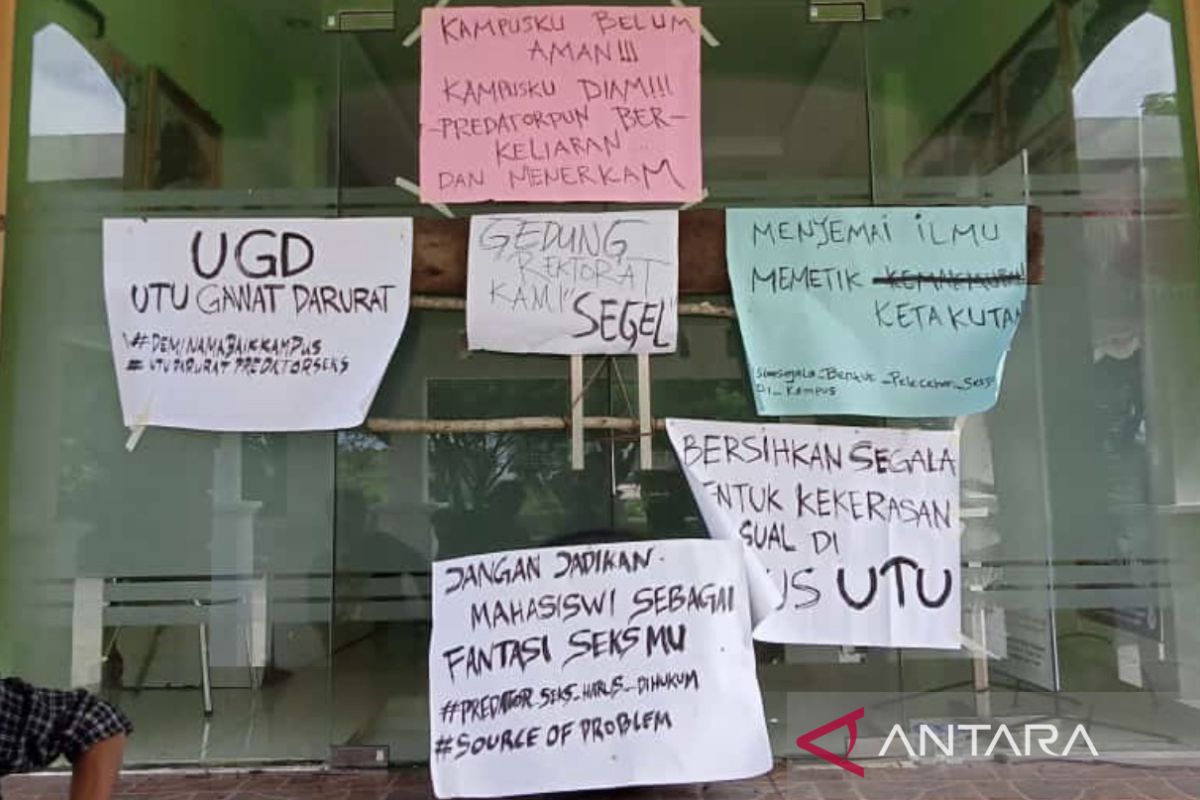 KAMPUSKU BELUM
AMAN!!!
KAMPUSKU DIAM!!!
-PREDATORPUN BER-
KELIARAN
DAN MENERKAM
UGD
UTU GAWAT DARURAT
#DEMINAMABAIKKAMPUS
#UTUDARURATPREDATORSEKS
GEDUNG
REKTORAT
KAMI "SEGEL"
MENJEMAI ILMU
MEMETIK KEMAKMURAN
KETAKUTAN
Di_Kampus
BERSIHKAN SEGALA
NTUK KEKERASAN
SUAL DI
US UTU
JANGAN JADIKAN
MAHASISWI SEBAGAI
FANTASI SEKSMU
#PREDATOR_SEKS_HARUS_DIHUKUM
#SOURCE OF PROBLEM
ANTARA